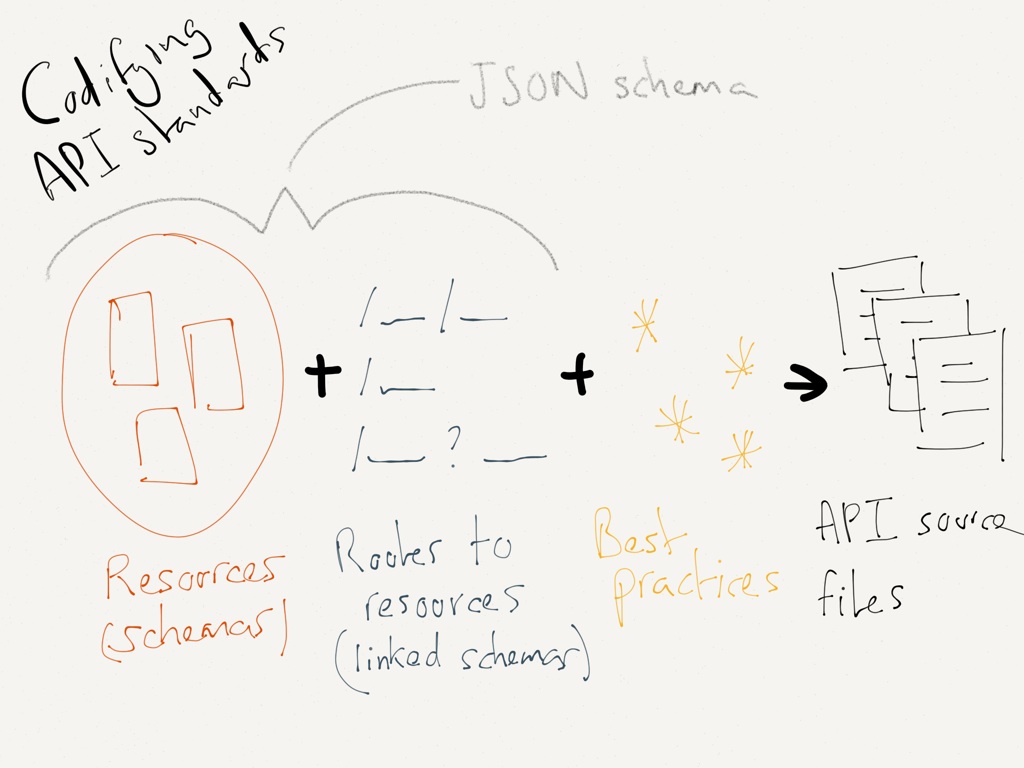 Codifying
API standards
JSON schema
/__/__
/__
/__?__
+
+
→
Resources
(schemas)
Routes to
resources
(linked schemas)
Best
practices
API source
files